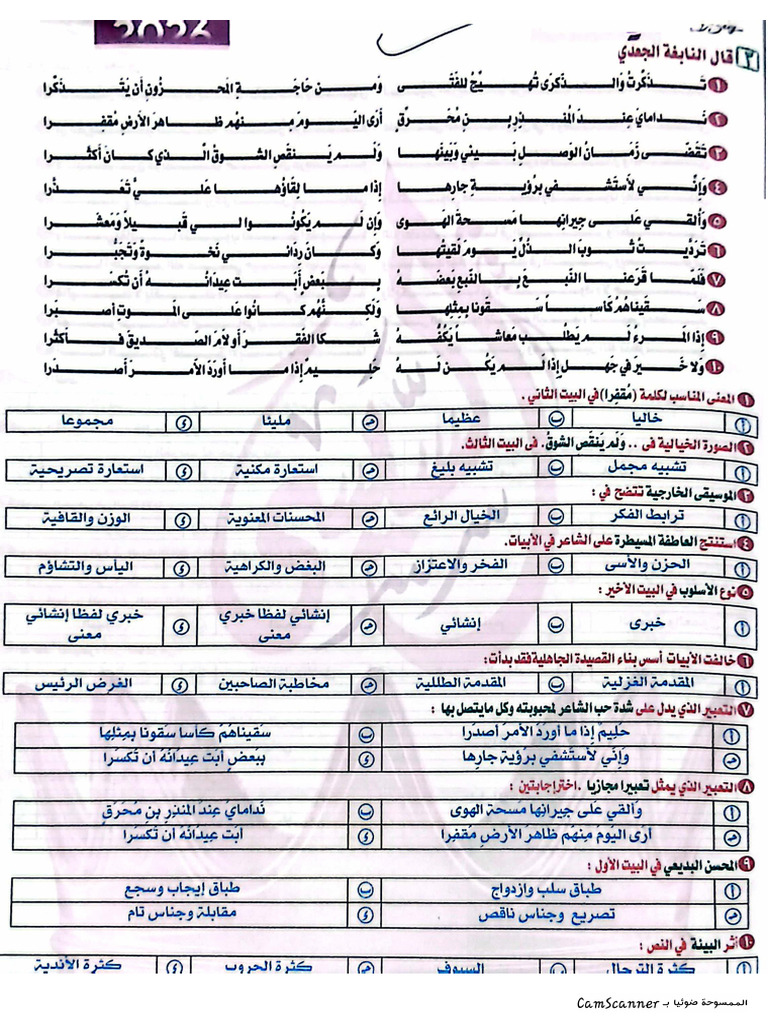 2024
٣ قال النابغة الجعدي
١ تذكرت والذكرى تهيج للفتى ومن حاجة المحزون أن يتذكرا
٢ نداماي عند المنذر بن محرق أرى اليوم منهم ظاهر الأرض مقفرا
٣ تقضى زمان الوصل بيني وبينها ولم ينقص الشوق الذي كان أكثرا
٤ وإني لأستشفي برؤية جارها إذا ما لقاؤها علي تعذرا
٥ وألقي على جيرانها مسحة الهوى وإن لم يكونوا لي قبيلا ومعشرا
٦ ترديت ثوب الذل يوم لقيتها وكان ردائي نخوة وتجبرا
٧ فلما قرعنا النبع بالنبع بعضه ببعض أبت عيدانه أن تكسرا
٨ سقيناهم كأسا سقونا بمثلها ولكنهم كانوا على الموت أصبرا
٩ إذا المرء لم يطلب معاشا يكفه شكا الفقر أو لام الصديق فأكثرا
١٠ ولا خير في جهل إذا لم يكن له حليم إذا ما أورد الأمر أصدرا
١ المعنى المناسب لكلمة (مقفرا) في البيت الثاني .
أ خاليا ب عظيما جـ مليئا د مجموعا
٢ الصورة الخيالية فى .. ولم ينقص الشوق. فى البيت الثالث.
أ تشبيه مجمل ب تشبيه بليغ جـ استعارة مكنية د استعارة تصريحية
٣ الموسيقى الخارجية تتضح في :
أ ترابط الفكر ب الخيال الرائع جـ المحسنات المعنوية د الوزن والقافية
٤ استنتج العاطفة المسيطرة على الشاعر في الأبيات.
أ الحزن والأسى ب الفخر والاعتزاز جـ البغض والكراهية د اليأس والتشاؤم
٥ نوع الأسلوب في البيت الأخير :
أ خبرى ب إنشائي جـ إنشائي لفظا خبري معنى د خبري لفظا إنشائي معنى
٦ خالفت الأبيات أسس بناء القصيدة الجاهلية فقد بدأت:
أ المقدمة الغزلية ب المقدمة الطللية جـ مخاطبة الصاحبين د الغرض الرئيس
٧ التعبير الذي يدل على شدة حب الشاعر لمحبوبته وكل ما يتصل بها :
أ حليم إذا ما أورد الأمر أصدرا ب سقيناهم كأسا سقونا بمثلها
جـ وإني لأستشفي برؤية جارها د ببعض أبت عيدانه أن تكسرا
٨ التعبير الذي يمثل تعبيرا مجازيا . اختر إجابتين :
أ وألقي على جيرانها مسحة الهوى ب نداماي عند المنذر بن محرق
جـ أرى اليوم منهم ظاهر الأرض مقفرا د أبت عيدانه أن تكسرا
٩ المحسن البديعي في البيت الأول :
أ طباق سلب وازدواج ب طباق إيجاب وسجع
جـ تصريع وجناس ناقص د مقابلة وجناس تام
١٠ أثر البيئة في النص :
أ كثرة الترحال ب السيوف جـ كثرة الحروب د كثرة الأندية
الممسوحة ضوئيا بـ CamScanner